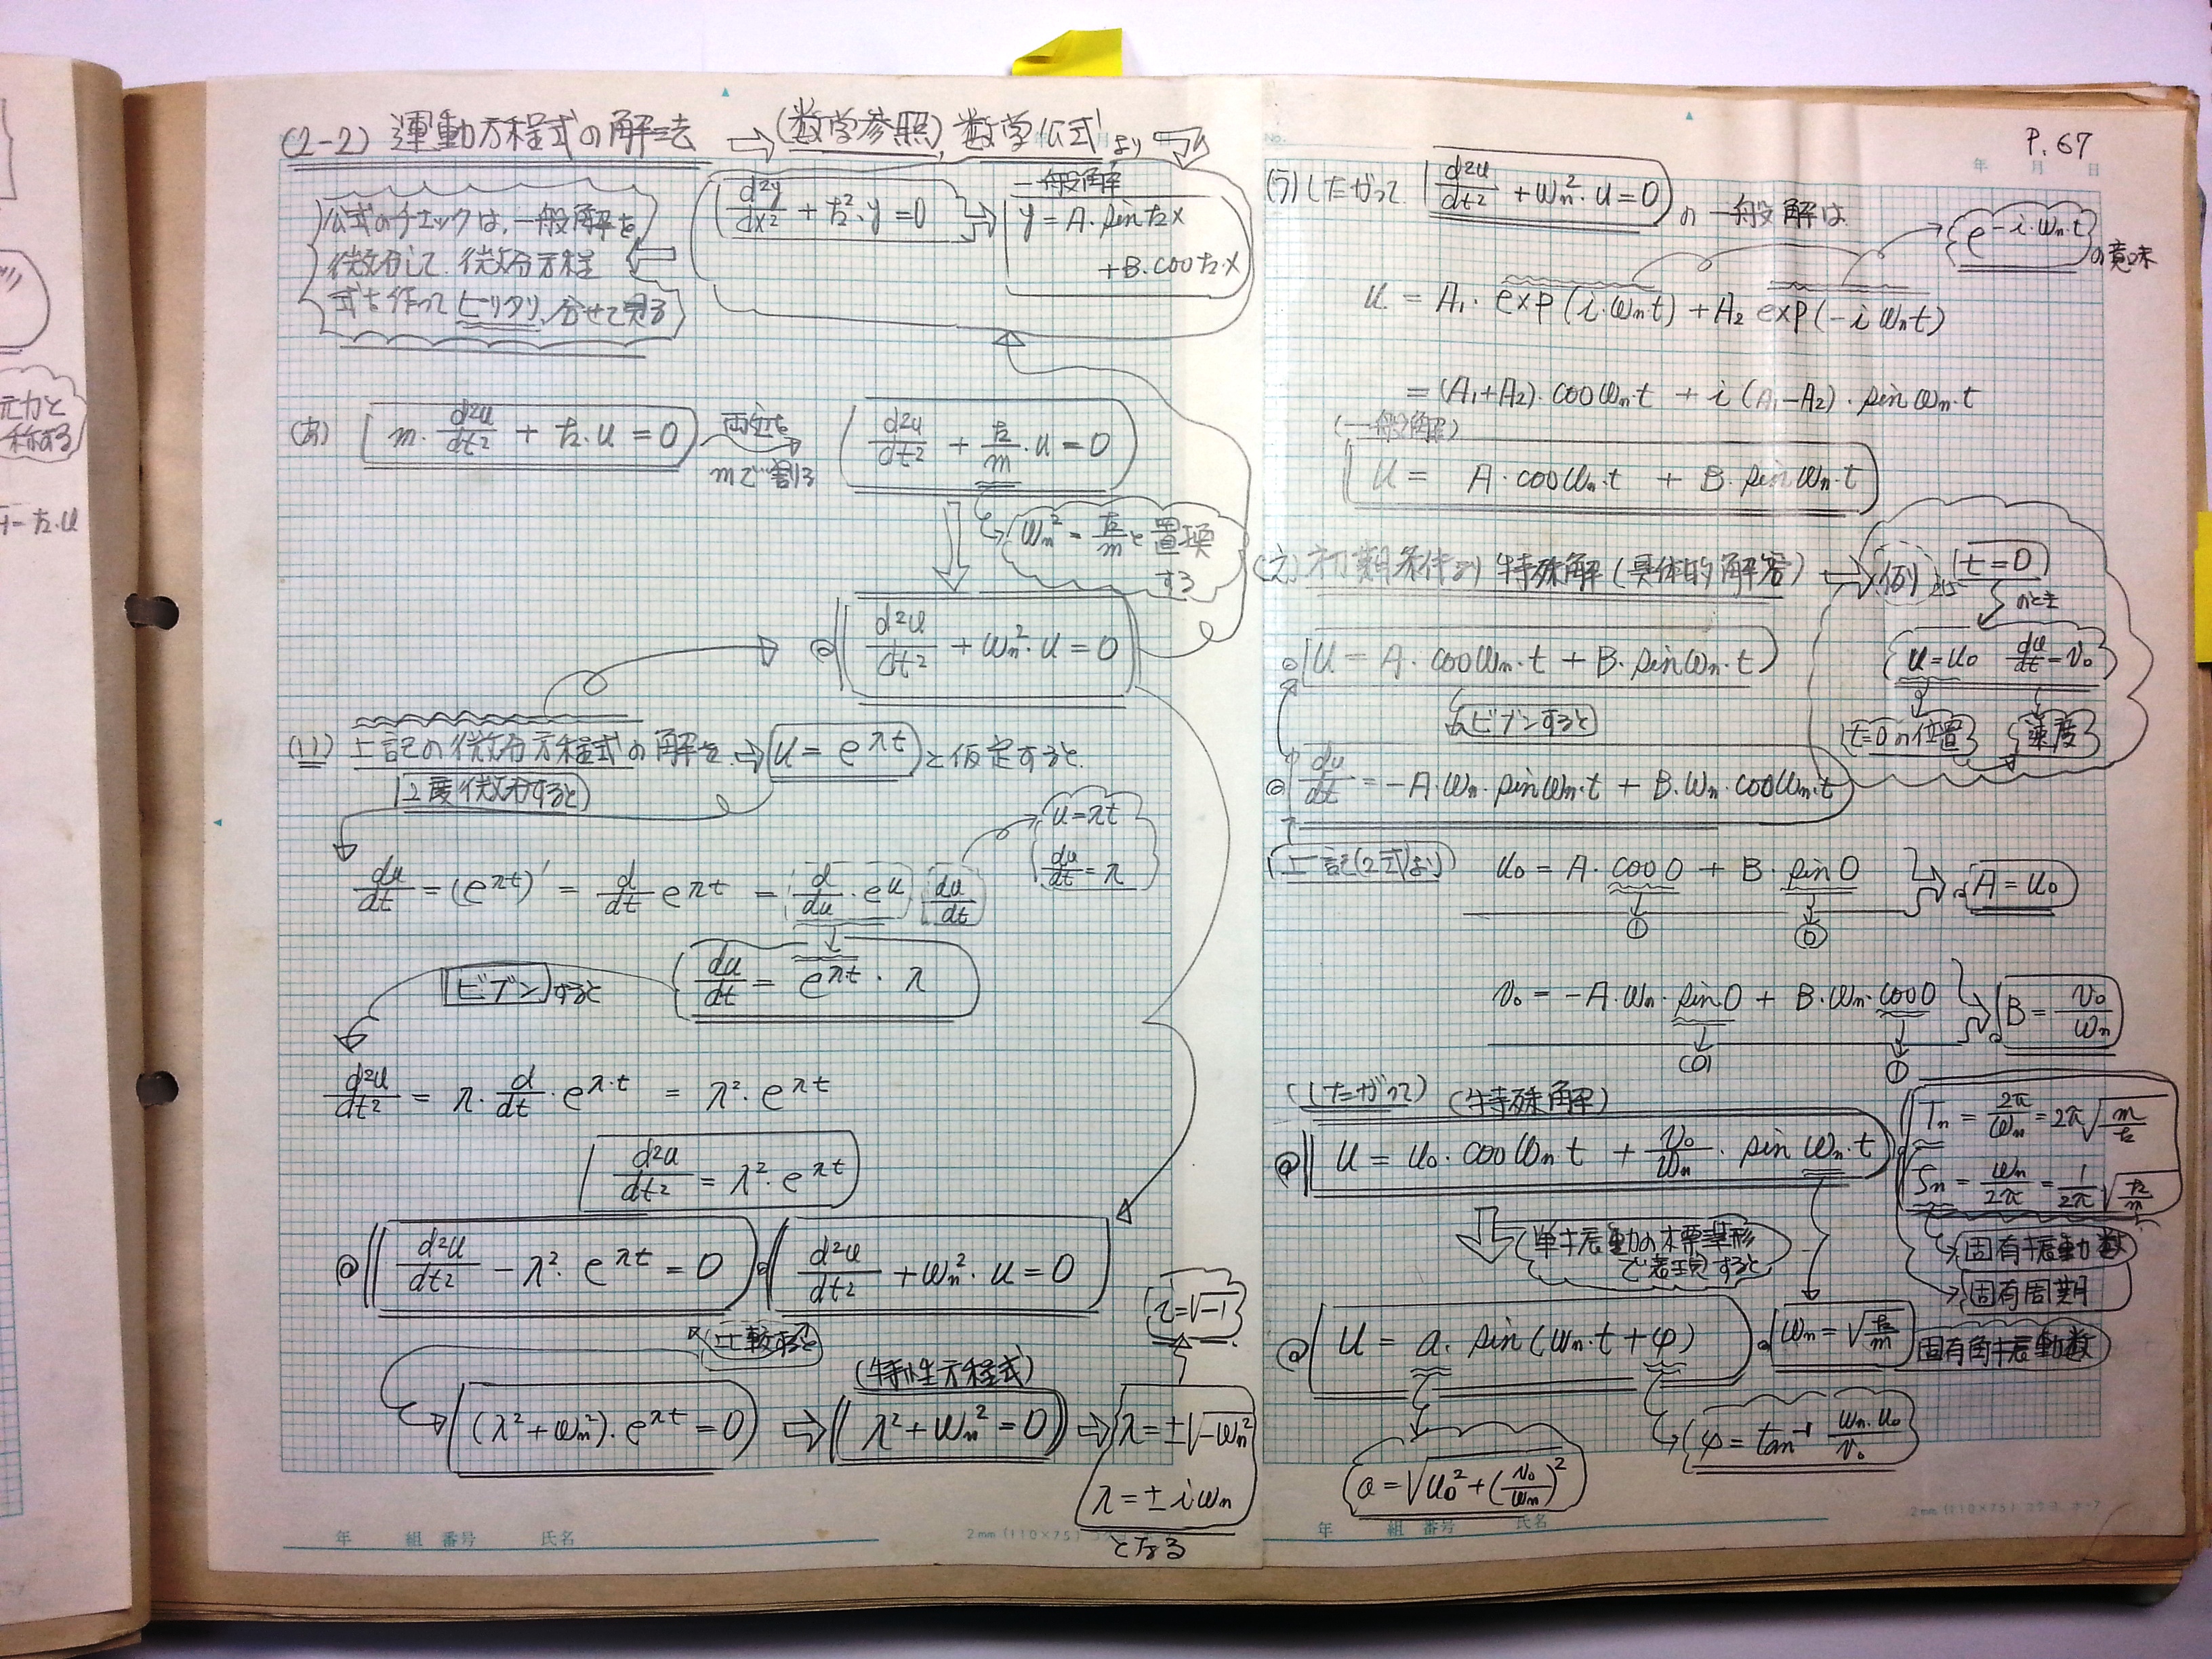 (2-2) 運動方程式の解法 ⇒ (数学参照), 数学公式より
公式のチェックは、一般解を
微分して、微分方程
式を作ってピッタリ、合せて見る
d²y/dx² + k²·y = 0
一般解
y = A·sin kx
+ B·cos k·x
(あ) m·d²u/dt² + k·u = 0
両辺を
mで割る
d²u/dt² + k/m·u = 0
ωn² = k/m と置換
する
◎ d²u/dt² + ωn²·u = 0
(い) 上記の微分方程式の解を ⇒ u = e^λt と仮定すると、
2度微分すると
u = λt
du/dt = λ
du/dt = (e^λt)' = d/dt e^λt = d/du·e^u du/dt
du/dt = e^λt·λ
ビブンすると
d²u/dt² = λ·d/dt·e^λ·t = λ²·e^λt
d²u/dt² = λ²·e^λt
◎ d²u/dt² − λ²·e^λt = 0 ◎ d²u/dt² + ωn²·u = 0
比較すると
i = √-1
(特性方程式)
(λ² + ωn²)·e^λt = 0 ⇒ λ² + ωn² = 0 ⇒ λ = ±√-ωn²
λ = ± i ωn
となる
年 組 番号 氏名
P. 67
No.
年 月 日
(う) したがって d²u/dt² + ωn²·u = 0 の一般解は
e^-i·ωn·t の意味
u = A₁·exp(i·ωn·t) + A₂ exp(-i ωn t)
= (A₁+A₂)·cos ωn·t + i(A₁-A₂)·sin ωn·t
(一般解)
U = A·cos ωn·t + B·sin ωn·t
(え) 初期条件より 特殊解(具体的解答) ⇒ (例)えば t = 0
のとき
u = u₀ du/dt = v₀
t=0の位置 速度
◎ U = A·cos ωn·t + B·sin ωn·t
ビブンすると
◎ du/dt = -A·ωn·sin ωn·t + B·ωn·cos ωn·t
上記(2式より) u₀ = A·cos 0 + B·sin 0 A = u₀
① ⓪
v₀ = -A·ωn·sin 0 + B·ωn·cos 0 B = v₀/ωn
(0) ①
(したがって) (特殊解)
◎ U = u₀·cos ωn t + v₀/ωn·sin ωn·t
Tn = 2π/ωn = 2π√m/k
fn = ωn/2π = 1/2π √k/m
固有振動数
固有周期
単振動の標準形
で表現すると
◎ U = a·sin(ωn·t + φ) ◎ ωn = √k/m 固有角振動数
a = √u₀² + (v₀/ωn)²
φ = tan⁻¹ ωn·u₀/v₀
年 組 番号 氏名